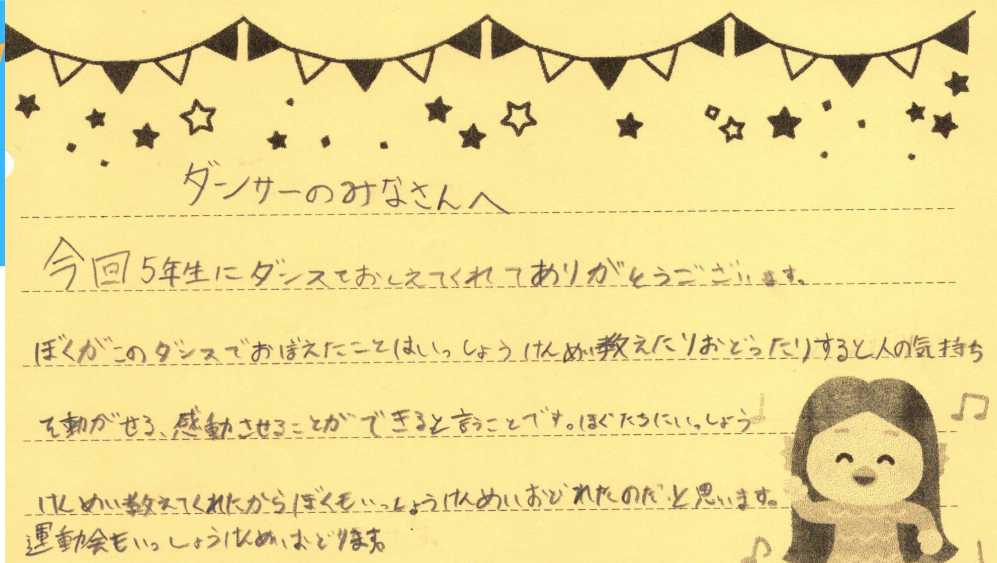 ダンサーのみなさんへ
今回5年生にダンスをおしえてくれてありがとうございます。
ぼくがこのダンスでおぼえたことはいっしょうけんめい教えたりおどったりすると人の気持ち
を動がせる、感動させることができると言うことです。ぼくたちにいっしょう
けんめい教えてくれたからぼくもいっしょうけんめいおどれたのだと思います。
運動会もいっしょうけんめいおどります。